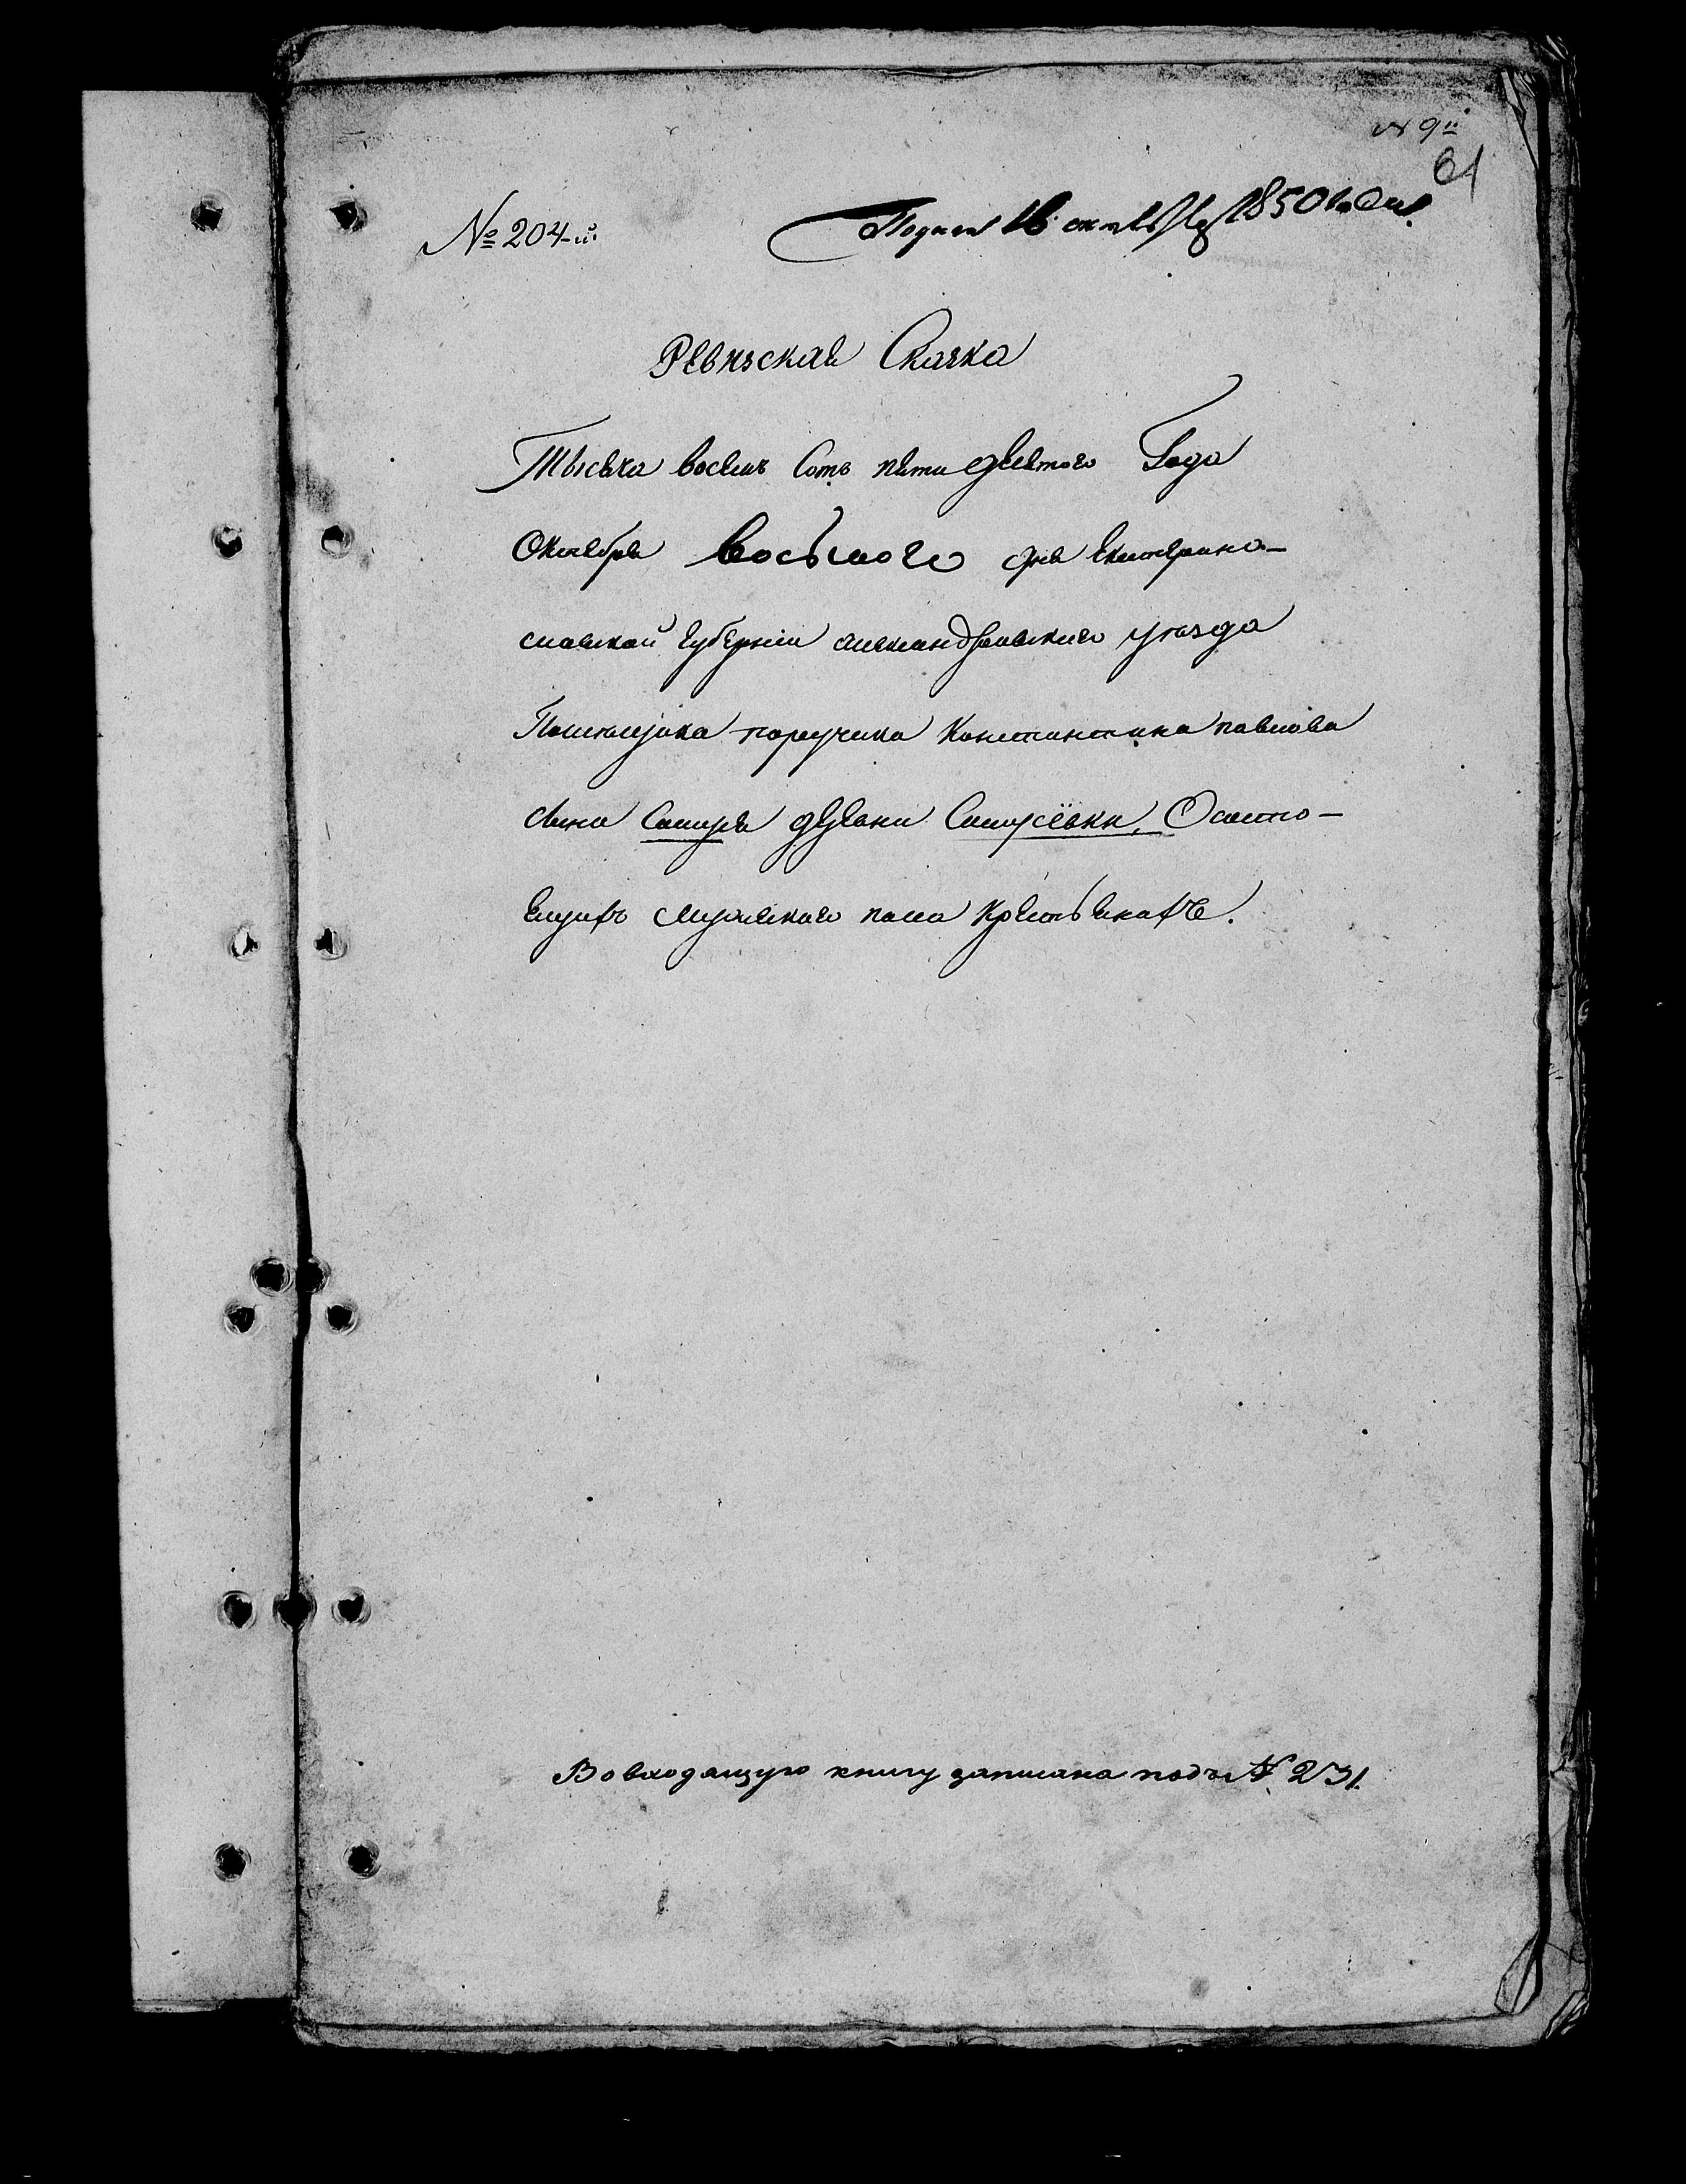 № 9й
61
№ 204-й.
Подана 16 октября 1850 года.
Ревизская Сказка
Тысяча восемь Сотъ пятидесятого Года
Октября восьмого дня Екатерино-
славской губерніи александровского уезда
Помещика поручика Константина павлова
сына деревни О состо-
ящихъ мужескаго пола Крестьянахъ.
Во входящую книгу записана подъ № 231.